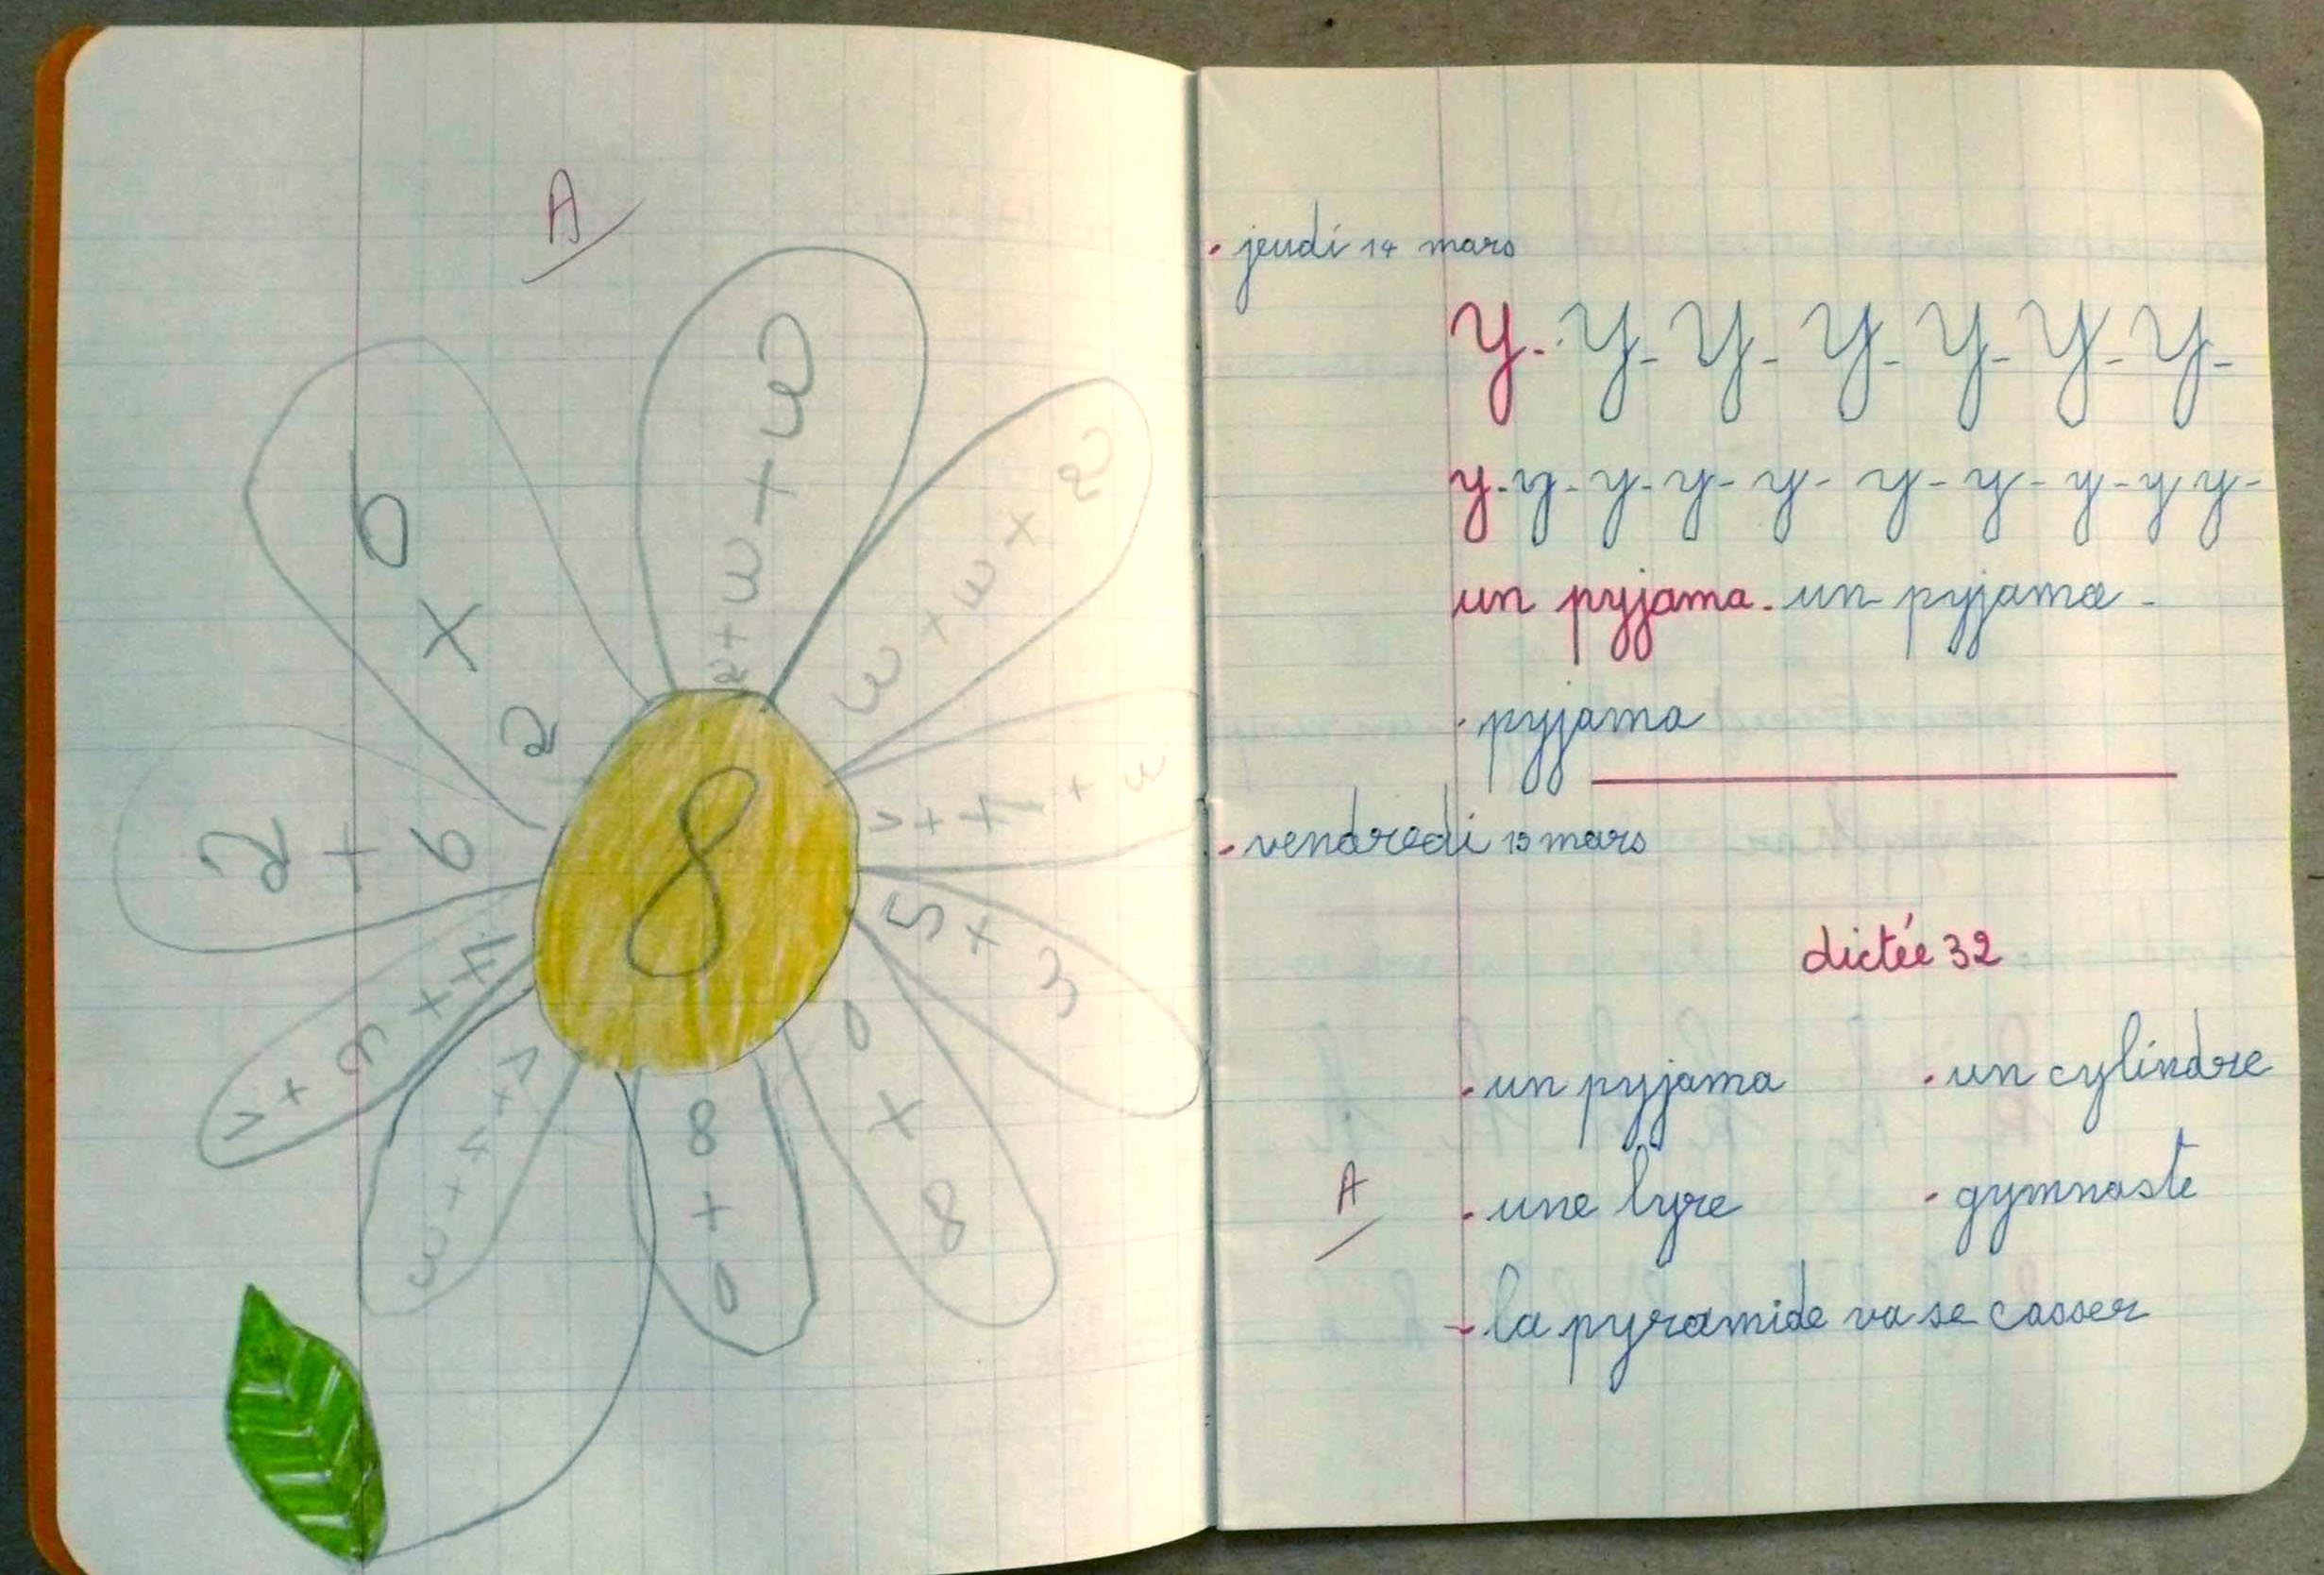 A
6
+
2
3 + 3 + 2
3 + 3 + 2
1 + 4 + 3
5 + 3
0 + 8
8
+
0
3 + 4 + 1
4 + 3 + 1
2 + 6
8
. jeudi 14 mars
y - y - y - y - y - y - y -
y - y - y - y - y - y - y - y - y y -
un pyjama - un pyjama -
. pyjama
. vendredi 15 mars
dictée 32
. un pyjama . un cylindre
A . une lyre . gymnaste
- la pyramide va se casser